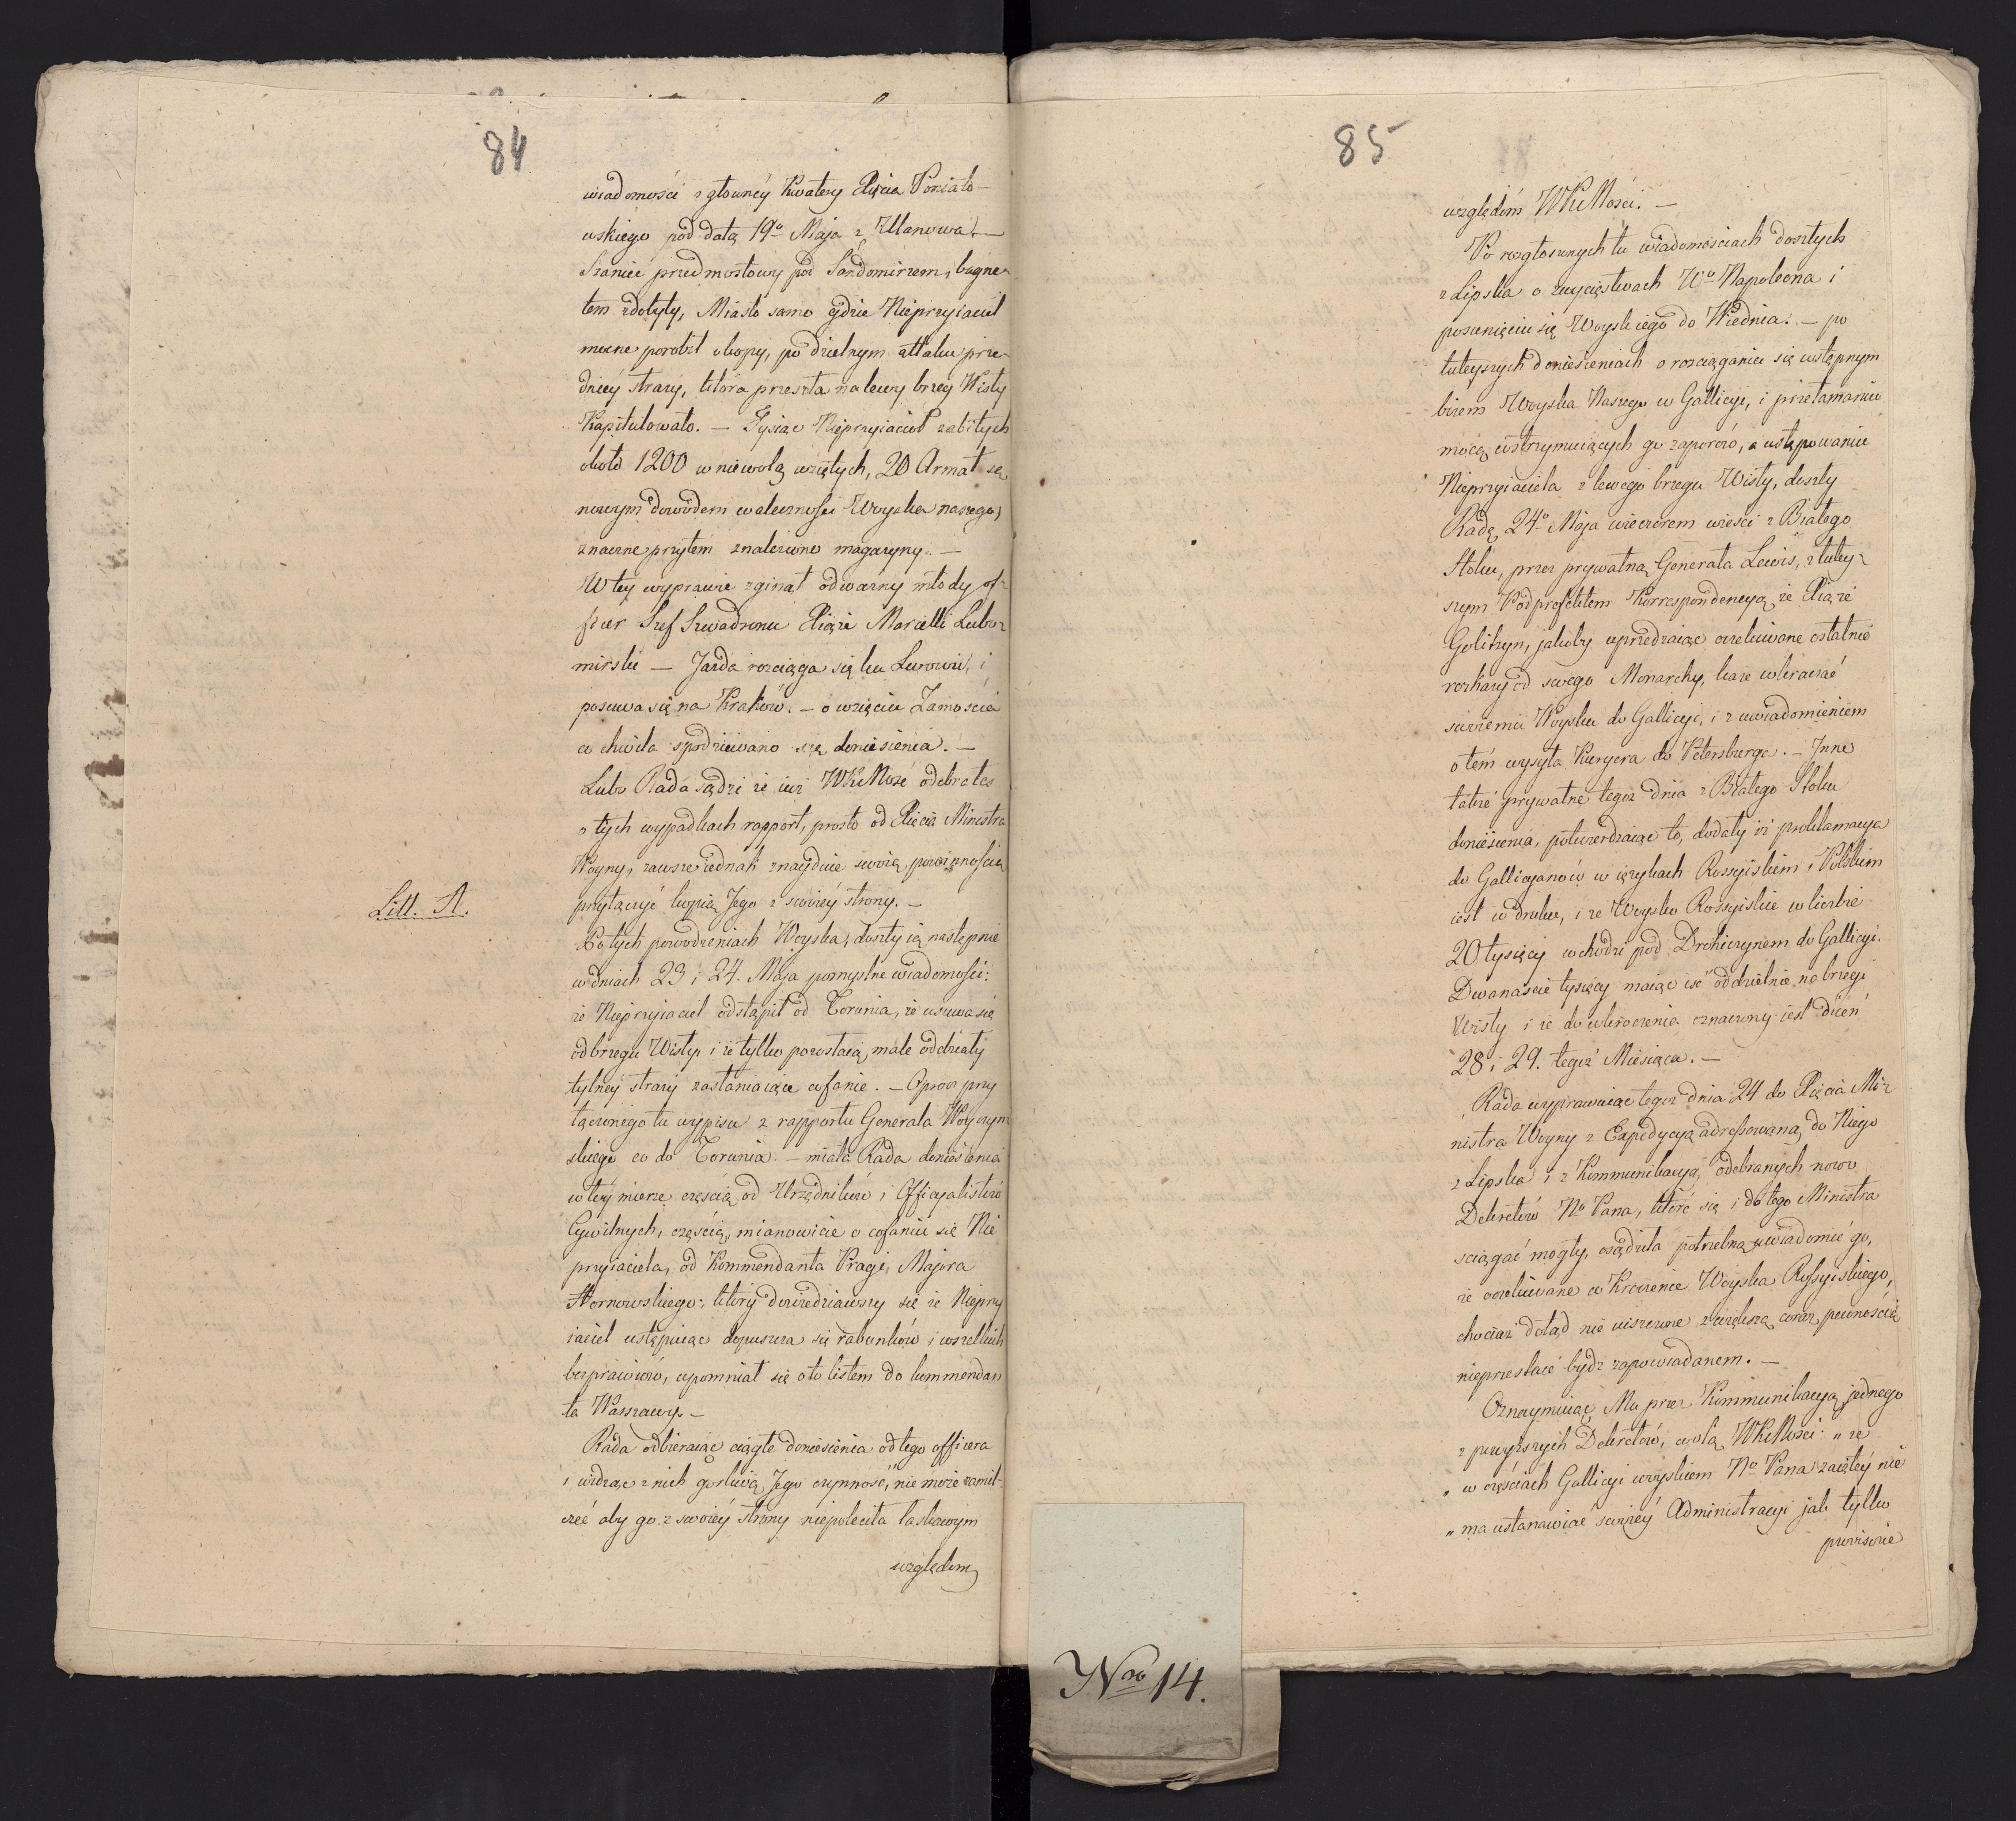 84
wiadomości z głowney Kwatery Xięcia Poniato-
wskiego pod datą 19o Maja z Ulanowa. —
Szaniec przedmostowy pod Sandomirzem, bagne-
tem zdobyty, Miasto samo gdzie Nieprzyiaciel
mocne porobił okopy, po dzielnym attaku prze-
dniey straży, która przeszła na lewy brzeg Wisły
Kapitulowało. — Tysiąc Nieprzyiaciół zabitych
około 1200 w niewolą wziętych, 20 Armat są
nowym dowodem waleczności Woyska naszego,
znaczne przytem znalezione magazyny. —
W tey wyprawie zginął odważny młody of-
ficer Szef Szwadronu Xiąże Marcelli Lubo-
mirski — Jazda rozciąga się ku Lwowu, i
posuwa się na Kraków. — o wzięciu Zamościa
co chwila spodziewano się doniesienia. —
Lubo Rada sądzi że iuż WKMość odebrałeś
o tych wypadkach rapport, prosto od Xięcia Ministra
Woyny, zawsze iednak znayduie swoią powinnością
przyłączyć kopią Jego z swoiey strony. —
Litt. A.
Po tych powodzeniach Woyska, doszły ią następnie
w dniach 23 i 24. Maja pomyślne wiadomości:
że Nieprzyiaciel odstąpił od Torunia, że usuwa się
od brzegu Wisły, i że tylko pozostaią małe oddziały
tylney straży zasłaniaiące cofanie. — Oprocz przy
łączonego tu wypisu z rapportu Generała Woyczyn
skiego co do Torunia. — miała Rada doniesienia
w tey mierze częścią od Urzędników i Officyalistów
Cywilnych, częścią, mianowicie o cofaniu się Nie
przyiaciela, od Kommendanta Pragi, Majora
Hornowskiego: który dowiedziawszy się że Nieprzy
iaciel ustępuiąc dopuszcza się rabunków i wszelkich
bezprawiów, upomniał się o to listem do kommendan
ta Warszawy. —
Rada odbieraiąc ciągłe doniesienia od tego officera
i widząc z nich gorliwą Jego czynność, nie może zamil-
czéć aby go z swoiéy strony niepoleciła łaskawym
względom
85
względóm WKMości. —
Po rozgłoszonych tu wiadomościach doszłych
z Lipska o zwycięstwach Wo Napoleona i
posunięciu się Woysk iego do Wiednia. — po
tuteyszych doniesieniach o rozciąganiu się wstępnym
boiem Woyska Naszego w Gallicyi, i przełamaniu
mocą wstrzymuiących go zaporów, a ustępowaniu
Nieprzyiaciela z lewego brzegu Wisły, doszły
Radę 24o Maja wieczorem wieści z Białego
Stoku, przez prywatną Generała Lewis, z tutey-
szym Podprefektem Korrespondencyą, że Xiąże
Golitzyn, jakoby uprzedzaiąc oczekiwane ostatnie
rozkazy od swego Monarchy, każe wkraczać
swoiemu Woysku do Gallicyi, i z uwiadomieniem
o tém wysyła Kuryera do Petersburga. — Inne
także prywatne tegoż dnia z Białego Stoku
doniesienia, potwierdzaiąc to, dodały iż proklamacya
do Gallicyanów w ięzykach Rossyiskiem i Polskim
iest w druku, i że Woysko Rossyiskie w liczbie
20 tysięcy wchodzi pod Drohiczynem do Gallicyi.
Dwanaście tysięcy maiąc iść oddzielnie na brzegi
Wisły i że do wkroczenia oznaczony iest dzień
28 i 29. tegoż Miesiąca. —
Rada wyprawuiąc tegoż dnia 24 do Xięcia Mi-
nistra Woyny z Expedycyą adressowaną do Niego
z Lipska i z Kommunikacyą odebranych nowo
Dekretów No Pana, które się i do tego Ministra
sciągać mogły, osądziła potrzebną uwiadomić go,
że oczekiwane wkroczenie Woyska Rossyiskiego,
chociaż dotąd nie uiszczone z większą coraz pewnością
nieprzestaie bydź zapowiadanem. —
Oznaymuiąc Mu przez Kommunikacyą jednego
z powyższych Dekretów, wolą WKMości: „ że
„ w częściach Gallicyi woyskiem No Pana zaiętéy nie
„ ma ustanawiać swoiéy Administracyi jak tylko
prowisorie
Nro 14.